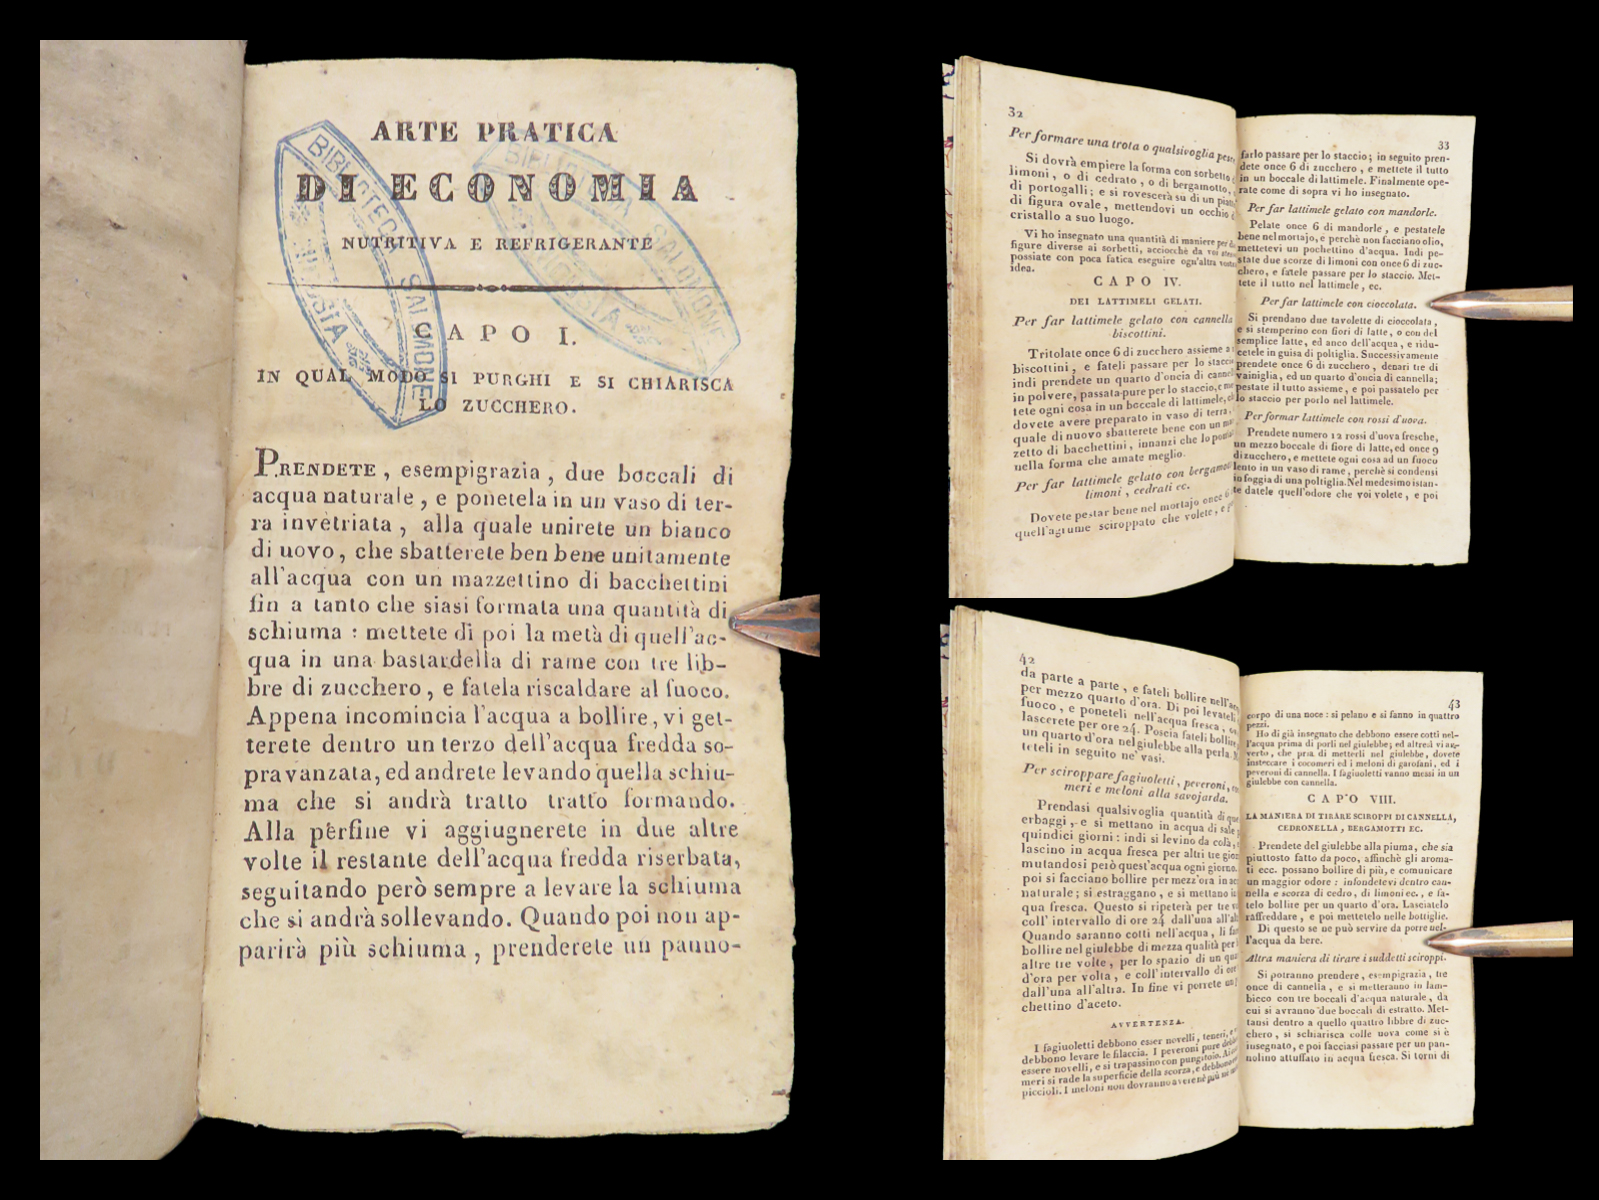 ARTE PRATICA
DI ECONOMIA
NUTRITIVA E REFRIGERANTE
CAPO I.
IN QUAL MODO SI PURGHI E SI CHIARISCA
LO ZUCCHERO.
PRENDETE, esempigrazia, due boccali di
acqua naturale, e ponetela in un vaso di ter-
ra invetriata, alla quale unirete un bianco
di uovo, che sbatterete ben bene unitamente
all'acqua con un mazzettino di bacchettini
fin a tanto che siasi formata una quantità di
schiuma: mettete di poi la metà di quell'ac-
qua in una bastardella di rame con tre lib-
bre di zucchero, e fatela riscaldare al fuoco.
Appena incomincia l'acqua a bollire, vi get-
terete dentro un terzo dell'acqua fredda so-
pravanzata, ed andrete levando quella schiu-
ma che si andrà tratto tratto formando.
Alla perfine vi aggiugnerete in due altre
volte il restante dell'acqua fredda riserbata,
seguitando però sempre a levare la schiuma
che si andrà sollevando. Quando poi non ap-
parirà più schiuma, prenderete un panno-
BIBLIOTECA SALOMONE
BIBLIOTECA SALOMONE
32
Per formare una trota o qualsivoglia
Si dovrà empiere la forma con sorbetto
limoni, o di cedrato, o di bergamotto,
di portogalli; e si rovescerà su di un
di figura ovale, mettendovi un occhio
cristallo a suo luogo.
Vi ho insegnato una quantità di maniere per
figure diverse ai sorbetti, acciocchè da voi
possiate con poca fatica eseguire ogn'altra
idea.
CAPO IV.
DEI LATTIMELI GELATI.
Per far lattimele gelato con cannella
biscottini.
Tritolate once 6 di zucchero assieme a
biscottini, e fateli passare per lo
indi prendete un quarto d'oncia di
in polvere, passata pure per lo staccio, e
tete ogni cosa in un boccale di lattimele,
dovete avere preparato in vaso di terra,
quale di nuovo sbatterete bene con un
zetto di bacchettini, innanzi che lo
nella forma che amate meglio.
Per far lattimele gelato con
limoni, cedrati ec.
Dovete pestar bene nel mortajo once 6
quell'agrume sciroppato che volete, e
33
farlo passare per lo staccio; in seguito pren-
dete once 6 di zucchero, e mettete il tutto
in un boccale di lattimele. Finalmente ope-
rate come di sopra vi ho insegnato.
Per far lattimele gelato con mandorle.
Pelate once 6 di mandorle, e pestatele
bene nel mortajo, e perchè non facciano olio,
mettetevi un pochettino d'acqua. Indi pe-
state due scorze di limoni con once 6 di zuc-
chero, e fatele passare per lo staccio. Met-
tete il tutto nel lattimele, ec.
Per far lattimele con cioccolata.
Si prendano due tavolette di cioccolata,
e si stemperino con fiori di latte, o con del
semplice latte, ed anco dell'acqua, e ridu-
cetele in guisa di poltiglia. Successivamente
prendete once 6 di zucchero, denari tre di
vainiglia, ed un quarto d'oncia di cannella;
pestate il tutto assieme, e poi passatelo per
lo staccio per porlo nel lattimele.
Per formar lattimele con rossi d'uova.
Prendete numero 12 rossi d'uova fresche,
un mezzo boccale di fiore di latte, ed once 9
di zucchero, e mettete ogni cosa ad un fuoco
lento in un vaso di rame, perchè si condensi
in foggia di una poltiglia. Nel medesimo istan-
te datele quell'odore che voi volete, e poi
42
da parte a parte, e fateli bollire
per mezzo quarto d'ora. Di poi levateli
fuoco, e poneteli nell'acqua fresca,
lascerete per ore 24. Poscia fateli bollire
un quarto d'ora nel giulebbe alla perla.
teteli in seguito ne' vasi.
Per sciroppare fagiuoletti, peveroni,
meri e meloni alla savojarda.
Prendasi qualsivoglia quantità di
erbaggi, e si mettano in acqua di sale
quindici giorni: indi si levino da colà,
lascino in acqua fresca per altri tre
mutandosi però quest'acqua ogni giorno.
poi si facciano bollire per mezz'ora in
naturale; si estraggano, e si mettano
qua fresca. Questo si ripeterà per tre
coll' intervallo di ore 24 dall'una
Quando saranno cotti nell'acqua, li
bollire nel giulebbe di mezza qualità per
altre tre volte, per lo spazio di un
d'ora per volta, e coll'intervallo di
dall'una all'altra. In fine vi porrete un
chettino d'aceto.
AVVERTENZA.
I fagiuoletti debbono esser novelli, teneri,
debbono levare le filaccia. I peveroni pure
essere novelli, e si trapassino con pungitoio.
meri si rade la superficie della scorza, e
piccioli. I meloni non dovranno avere nè più
43
corpo di una noce: si pelano e si fanno in quattro
pezzi.
Ho di già insegnato che debbono essere cotti nel-
l'acqua prima di porli nel giulebbe; ed altresì vi av-
verto, che pria di metterli nel giulebbe, dovete
insteccare i cocomeri ed i meloni di garofani, ed i
peveroni di cannella. I fagiuoletti vanno messi in un
giulebbe con cannella.
CAPO VIII.
LA MANIERA DI TIRARE SCIROPPI DI CANNELLA,
CEDRONELLA, BERGAMOTTI EC.
Prendete del giulebbe alla piuma, che sia
piuttosto fatto da poco, affinchè gli aroma-
ti ecc. possano bollire di più, e comunicare
un maggior odore: infondetevi dentro can-
nella e scorza di cedro, di limoni ec., e fa-
telo bollire per un quarto d'ora. Lasciatelo
raffreddare, e poi mettetelo nelle bottiglie.
Di questo se ne può servire da porre nel-
l'acqua da bere.
Altra maniera di tirare i suddetti sciroppi.
Si potranno prendere, esempigrazia, tre
once di cannella, e si metteranno in lam-
bicco con tre boccali d'acqua naturale, da
cui si avranno due boccali di estratto. Met-
tansi dentro a quello quattro libbre di zuc-
chero, si schiarisca colle uova come si è
insegnato, e poi facciasi passare per un pan-
nolino attuffato in acqua fresca. Si torni di